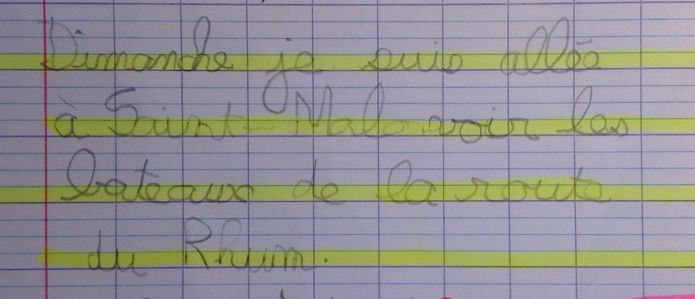 Dimanche je suis allée
à Saint-Malo voir les
bateaux de la route
du Rhum.